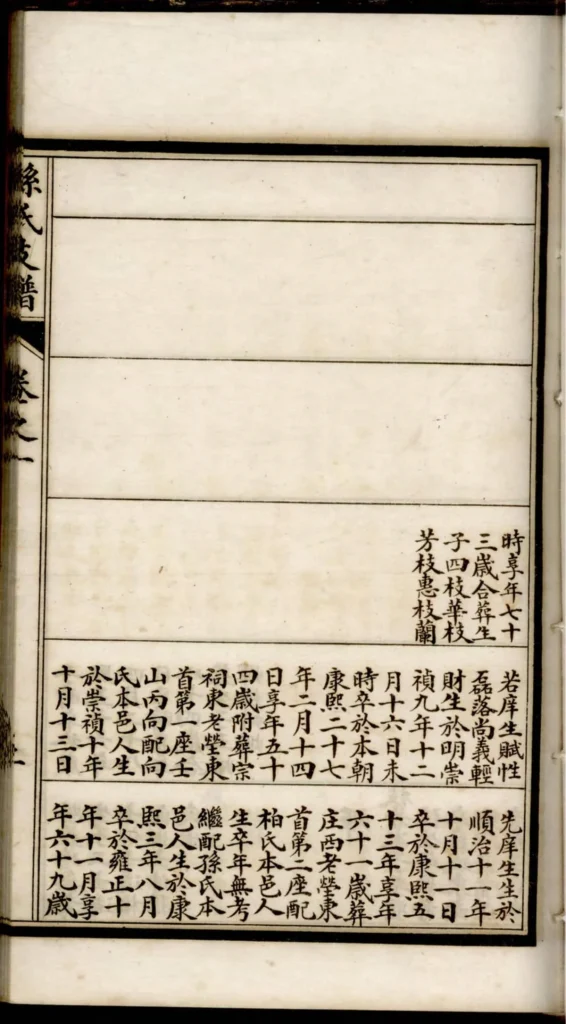 時享年七十
三歲合葬生
子四枝華枝
芳枝惠枝蘭
若庠生賦性
磊落尚義輕
財生於明崇
禎九年十二
月十六日未
時卒於本朝
康熙二十七
年二月十四
日享年五十
四歲附葬宗
祠東老塋東
首第一座壬
山丙向配向
氏本邑人生
於崇禎十年
十月十三日
先庠生生於
順治十一年
十月十一日
卒於康熙五
十三年享年
六十一歲葬
庄西老塋東
首第二座配
柏氏本邑人
生卒年無考
繼配孫氏本
邑人生於康
熙三年八月
卒於雍正十
年十一月享
年六十九歲
孫氏支譜
卷之一